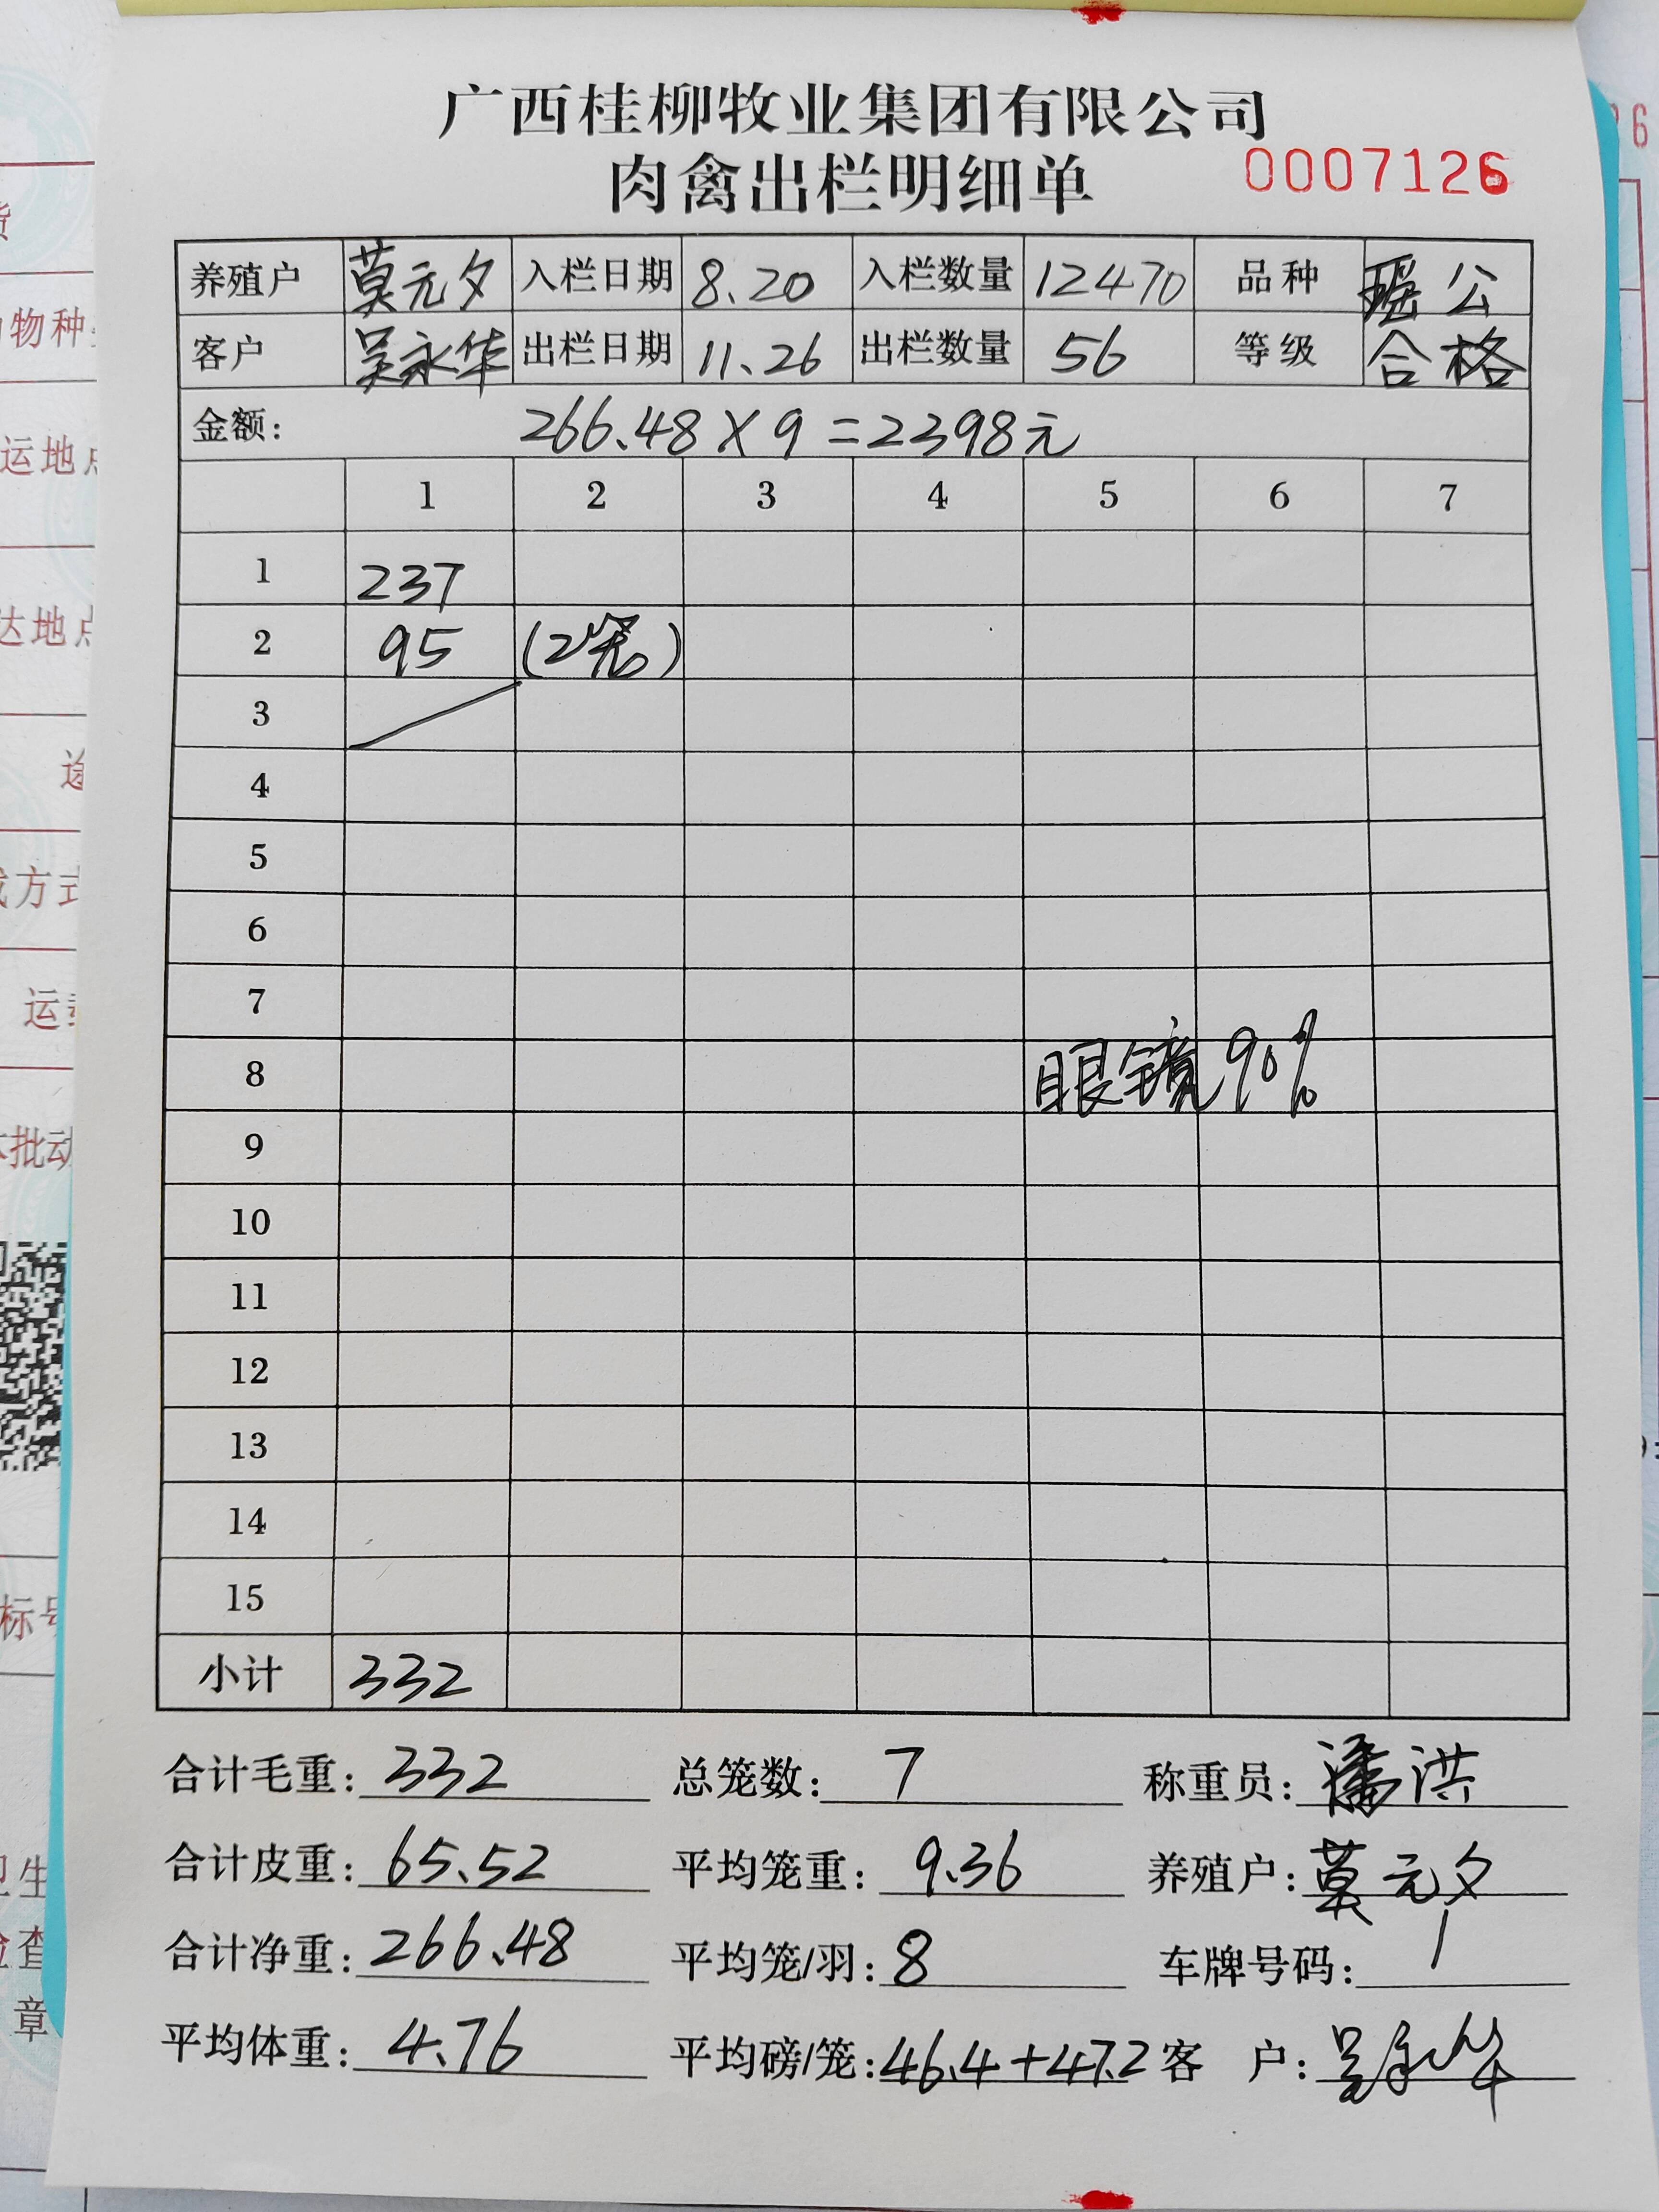 广西桂柳牧业集团有限公司
肉禽出栏明细单 0007126
养殖户 莫元夕 入栏日期 8.20 入栏数量 12470 品种 瑶公
客户 吴永华 出栏日期 11.26 出栏数量 56 等级 合格
金额: 266.48×9=2398元
1 2 3 4 5 6 7
1 237
2 95 (2笼)
3
4
5
6
7
8 眼镜90%
9
10
11
12
13
14
15
小计 332
合计毛重: 332 总笼数: 7 称重员: 潘洪
合计皮重: 65.52 平均笼重: 9.36 养殖户: 莫元夕
合计净重: 266.48 平均笼/羽: 8 车牌号码: /
平均体重: 4.76 平均磅/笼: 46.4+47.2 客 户: 吴永华
物种
运地点
达地点
方式
运
批动
标号
卫生
检查
章
26